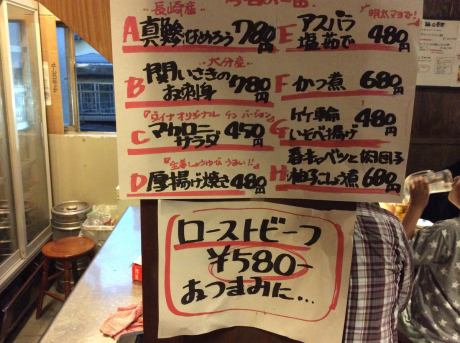 長崎産
A 真鯵なめろう 780円
大分産
B 関いさきのお刺身 780円
C マカロニサラダ 450円
生姜しょうゆがうまい!!
D 厚揚げ焼き 480円
明太マヨで!
E アスパラ塩茹で 480円
F かつ煮 680円
G 竹輪いそべ揚げ 480円
春キャベツと肉団子
H 柚子こしょう煮 680円
ローストビーフ
¥580-
おつまみに...